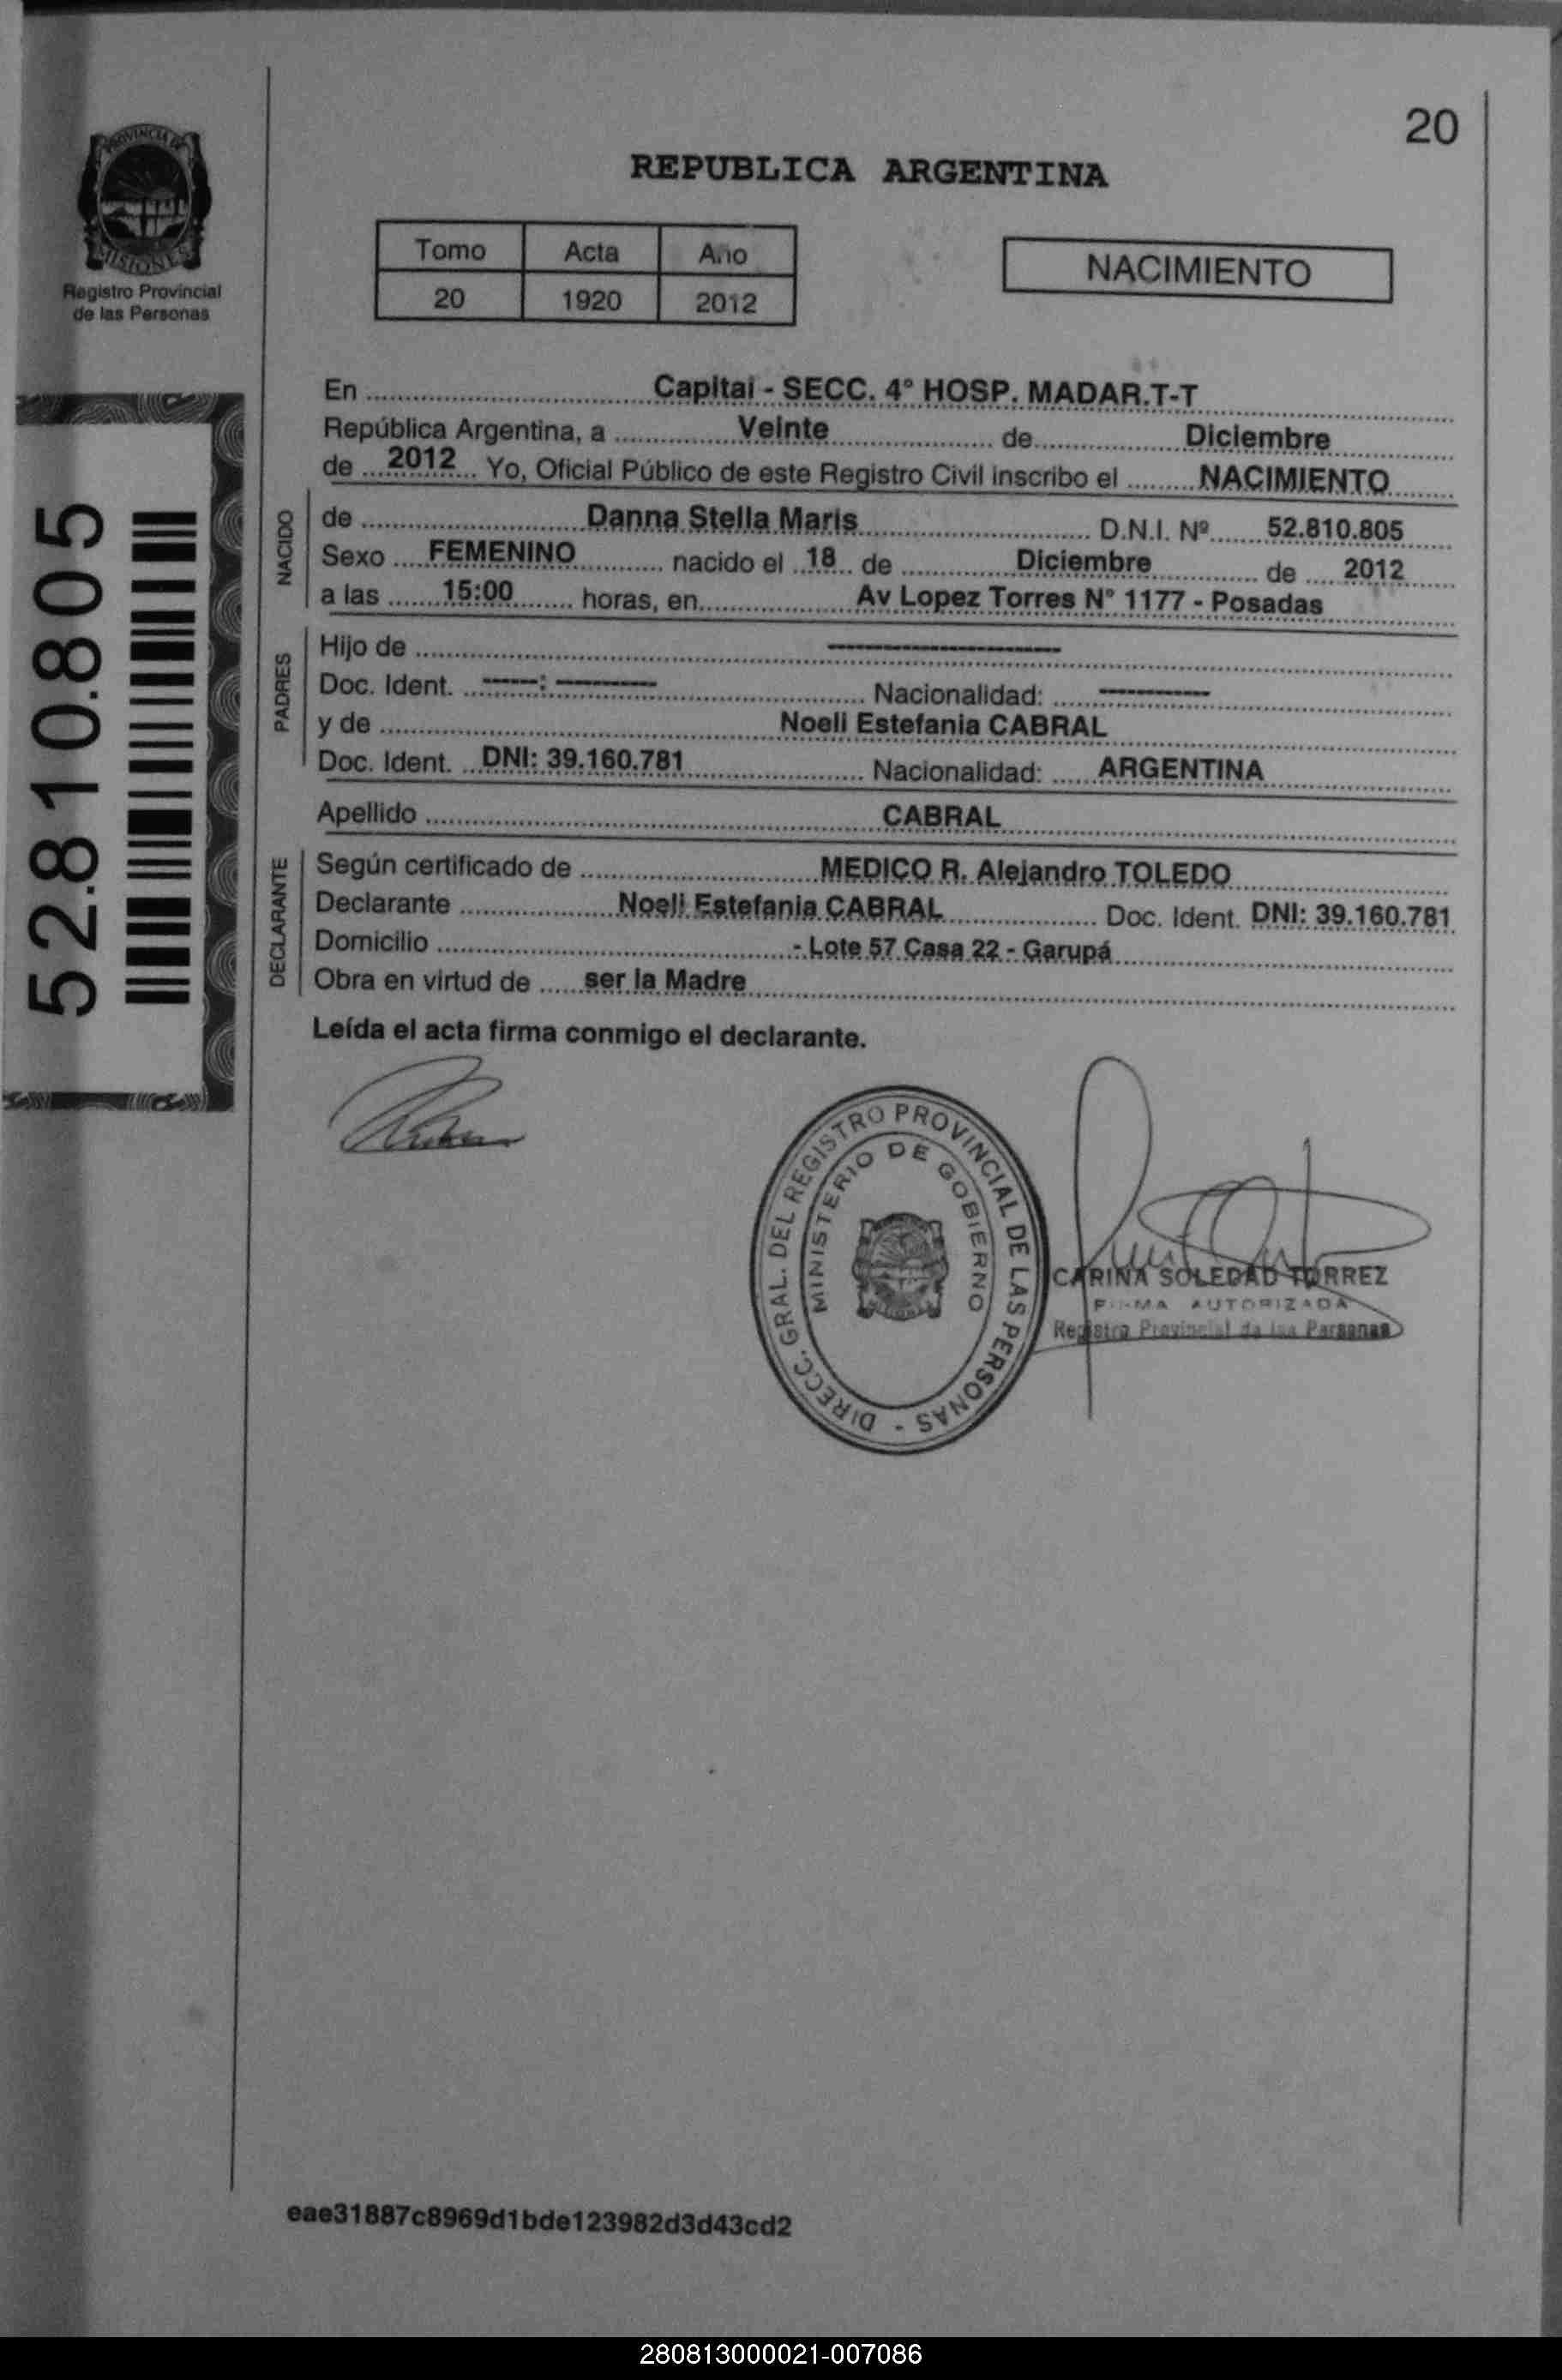 20
PROVINCIA DE
MISIONES
Registro Provincial
de las Personas
REPUBLICA ARGENTINA
Tomo Acta Año
20 1920 2012
NACIMIENTO
52.810.805
En Capital - SECC. 4° HOSP. MADAR.T-T
República Argentina, a Veinte de Diciembre
de 2012 Yo, Oficial Público de este Registro Civil inscribo el NACIMIENTO
NACIDO
de Danna Stella Maris D.N.I. Nº 52.810.805
Sexo FEMENINO nacido el 18 de Diciembre de 2012
a las 15:00 horas, en Av Lopez Torres N° 1177 - Posadas
PADRES
Hijo de ----------
Doc. Ident. ----: -------- Nacionalidad: --------
y de Noeli Estefania CABRAL
Doc. Ident. DNI: 39.160.781 Nacionalidad: ARGENTINA
Apellido CABRAL
DECLARANTE
Según certificado de MEDICO R. Alejandro TOLEDO
Declarante Noeli Estefania CABRAL Doc. Ident. DNI: 39.160.781
Domicilio - Lote 57 Casa 22 - Garupá
Obra en virtud de ser la Madre
Leída el acta firma conmigo el declarante.
DIRECC. GRAL. DEL REGISTRO PROVINCIAL DE LAS PERSONAS -
MINISTERIO DE GOBIERNO
CARINA SOLEDAD TORREZ
FIRMA AUTORIZADA
Registro Provincial de las Personas
eae31887c8969d1bde123982d3d43cd2
280813000021-007086